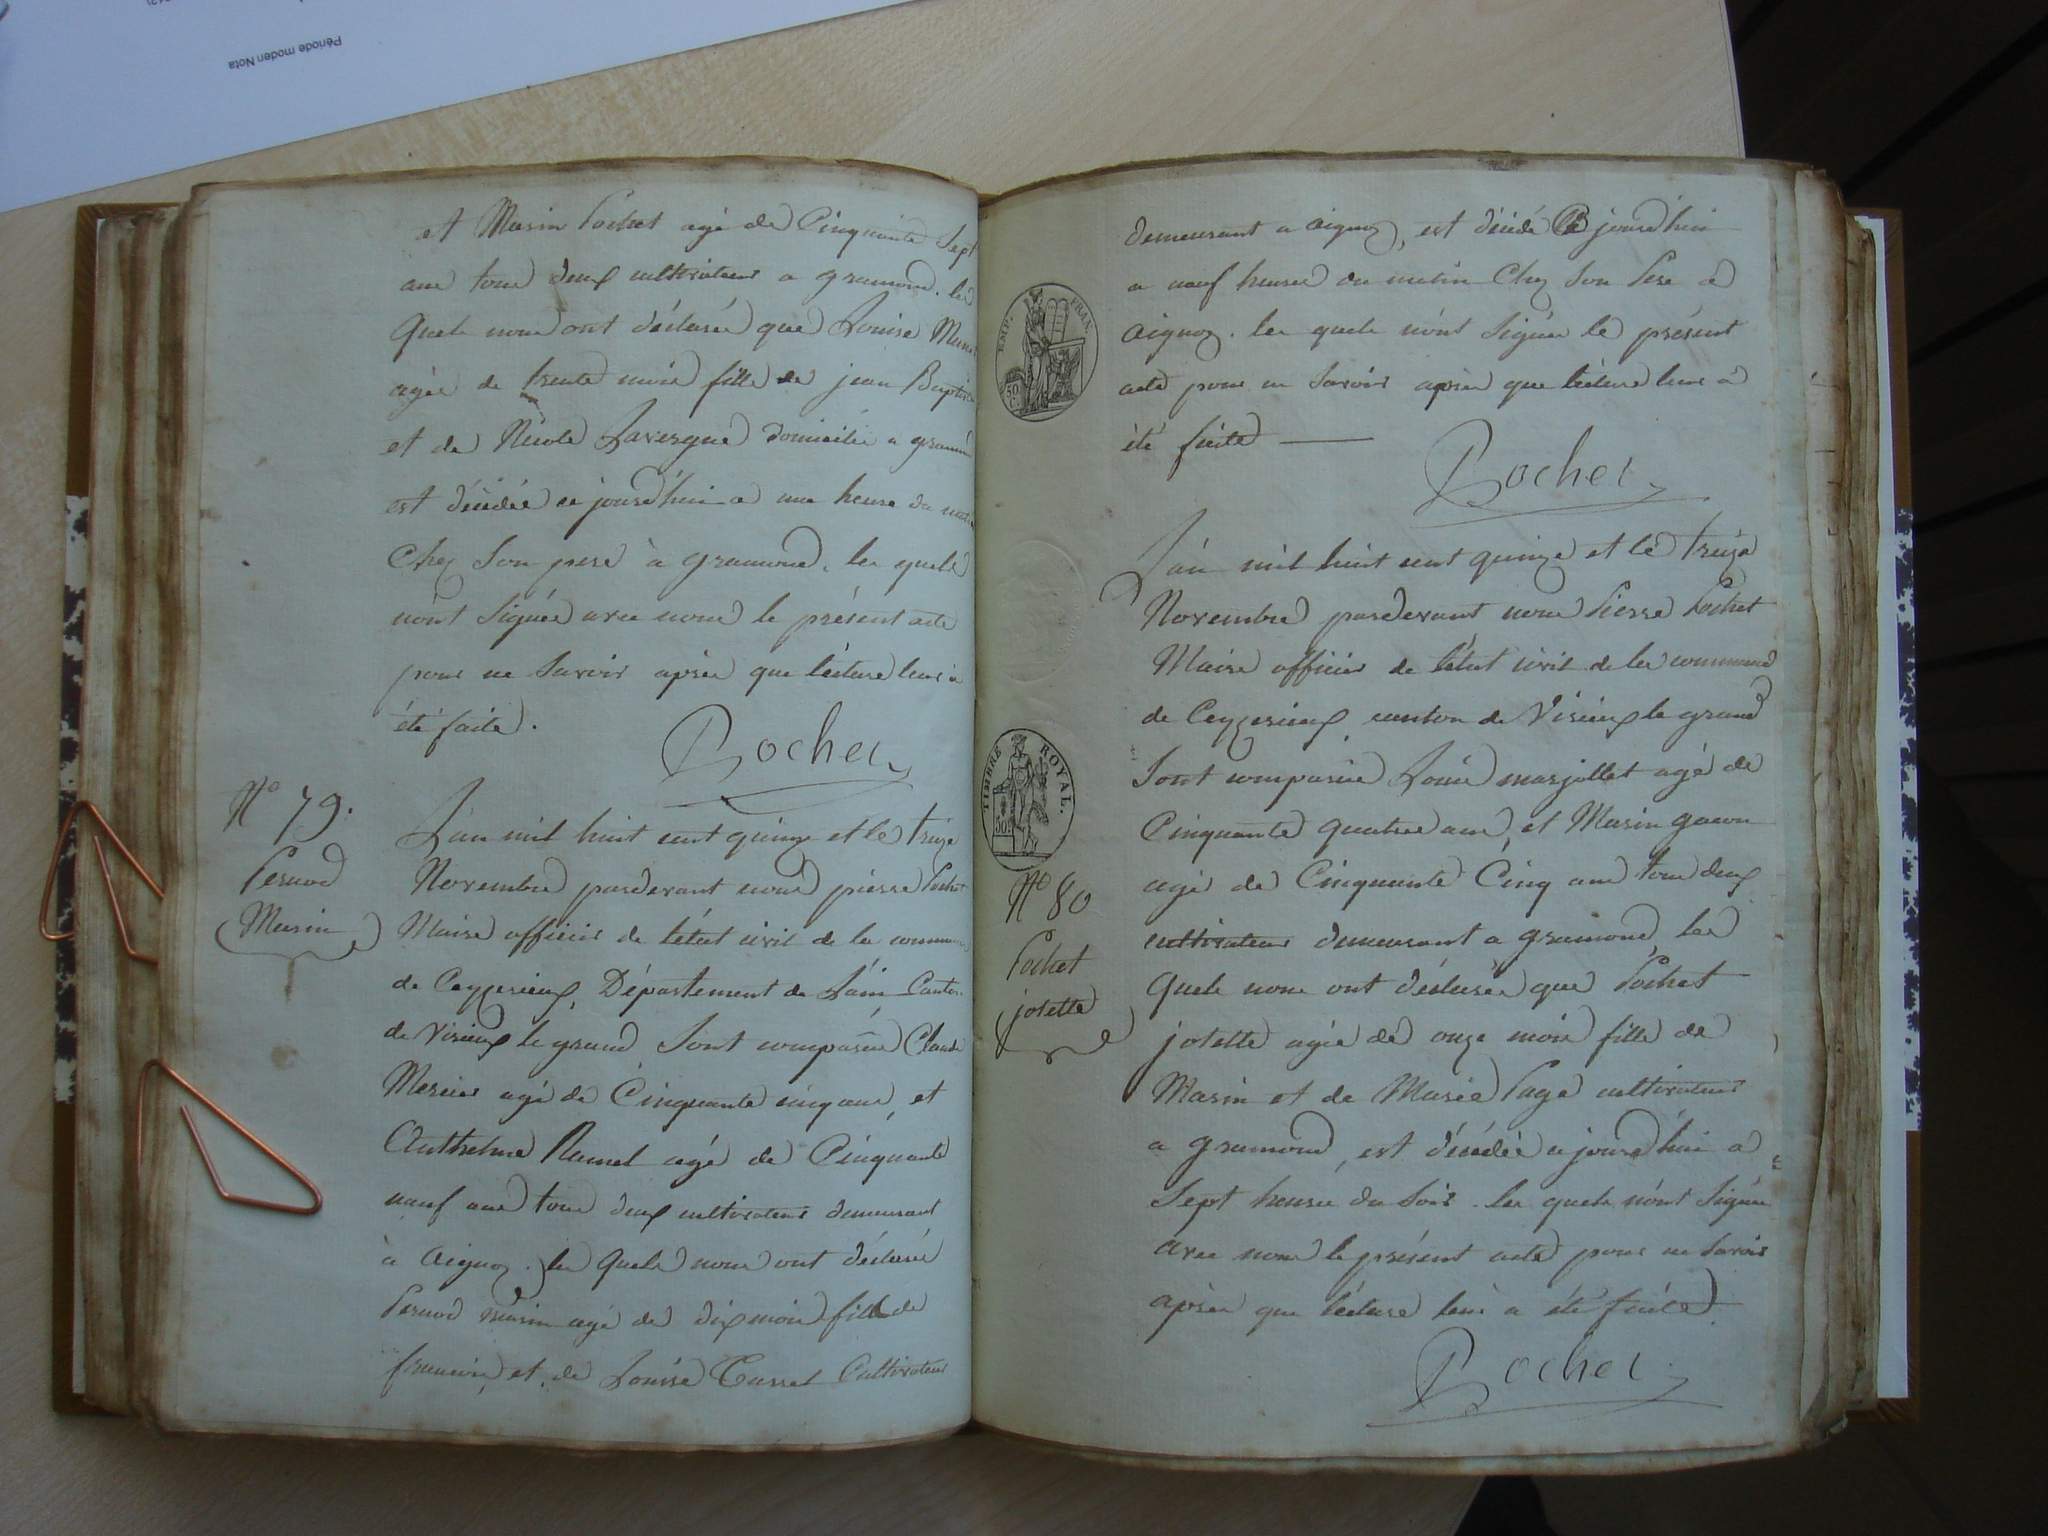 Période modern Nota
et Marin Pochet agé de Cinquante Sept
ans tous deux cultivateurs a gramond. les
quels nous ont déclarés que Louise
agée de trente mois fille de jean Baptiste
et de Nicole Lavergne domiciliée a gramond
est décédée ce jourd'hui a une heure du matin
Chez Son pere à gramond. les quels
n'ont Signés avec nous le présent acte
pour ne Savoir après que lécture leur à
été faite.
Pochet
N° 79.
Pernod
Marin
L'an mil huit cent quinze et le treize
Novembre pardevant nous pierre Pochet
Maire officier de létat civil de la commune
de Ceyzerieux, Département de L'ain Canton
de Virieux le grand Sont comparus Claude
Mercier agé de Cinquante cinq ans, et
Anthelme Ramel agé de Cinquante
neuf ans tous deux cultivateurs demeurant
à aignoz. les Quels nous ont déclarés
Pernod marin agé de dix mois fils de
francois, et de Louise Cultivateur
EMP. FRAN.
50 C.
TIMBRE ROYAL.
50
demeurant a aignoz, est décédé ce jourd'hui
a neuf heures du matin Chez Son Pere a
aignoz. les quels n'ont Signés le présent
acte pour ne Savoir après que lécture leur à
été faite
Pochet
L'an mil huit cent quinze et le treize
Novembre pardevant nous Pierre Pochet
Maire officier de létat civil de la commune
de Ceyzerieux, canton de Virieux le grand
Sont comparus Louis marjollet agé de
Cinquante quatre ans, et Marin gacon
agé de Cinquante Cinq ans tous deux
cultivateurs demeurant a gramond, les
Quels nous ont déclarés que Pochet
josette agée de onze mois fille de
Marin et de Marie Page cultivateurs
a gramond, est décédée cejourd'hui a
Sept heures du Soir. les quels n'ont Signés
avec nous le présent acte pour ne Savoir
après que lécture leur a été faite.
Pochet
N° 80
Pochet
josette